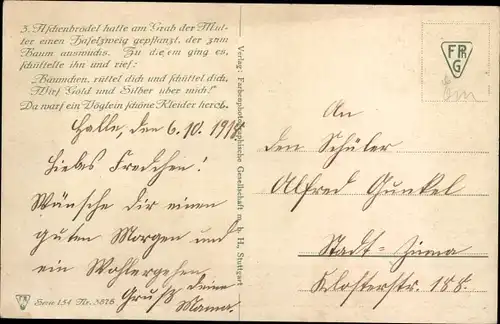 3. Aschenbrödel hatte am Grab der Mut-
ter einen Haselzweig gepflanzt, der zum
Baum auswuchs. Zu diesem ging es,
schüttelte ihn und rief:
„Bäumchen, rüttel dich und schüttel dich,
Wirf Gold und Silber über mich!"
Da warf ein Vöglein schöne Kleider herab.
Halle, den 6. 10. 1919.
Liebes Fredchen!
Wünsche Dir einen
guten Morgen und
ein Wohlergehen,
Gruß Deine
Mama.
Serie 154 Nr. 3876
Verlag: Farbenphotographische Gesellschaft m. b. H., Stuttgart
FPG
An
den Schüler
Alfred Gunkel
Stadt-
Klosterstr. 188.